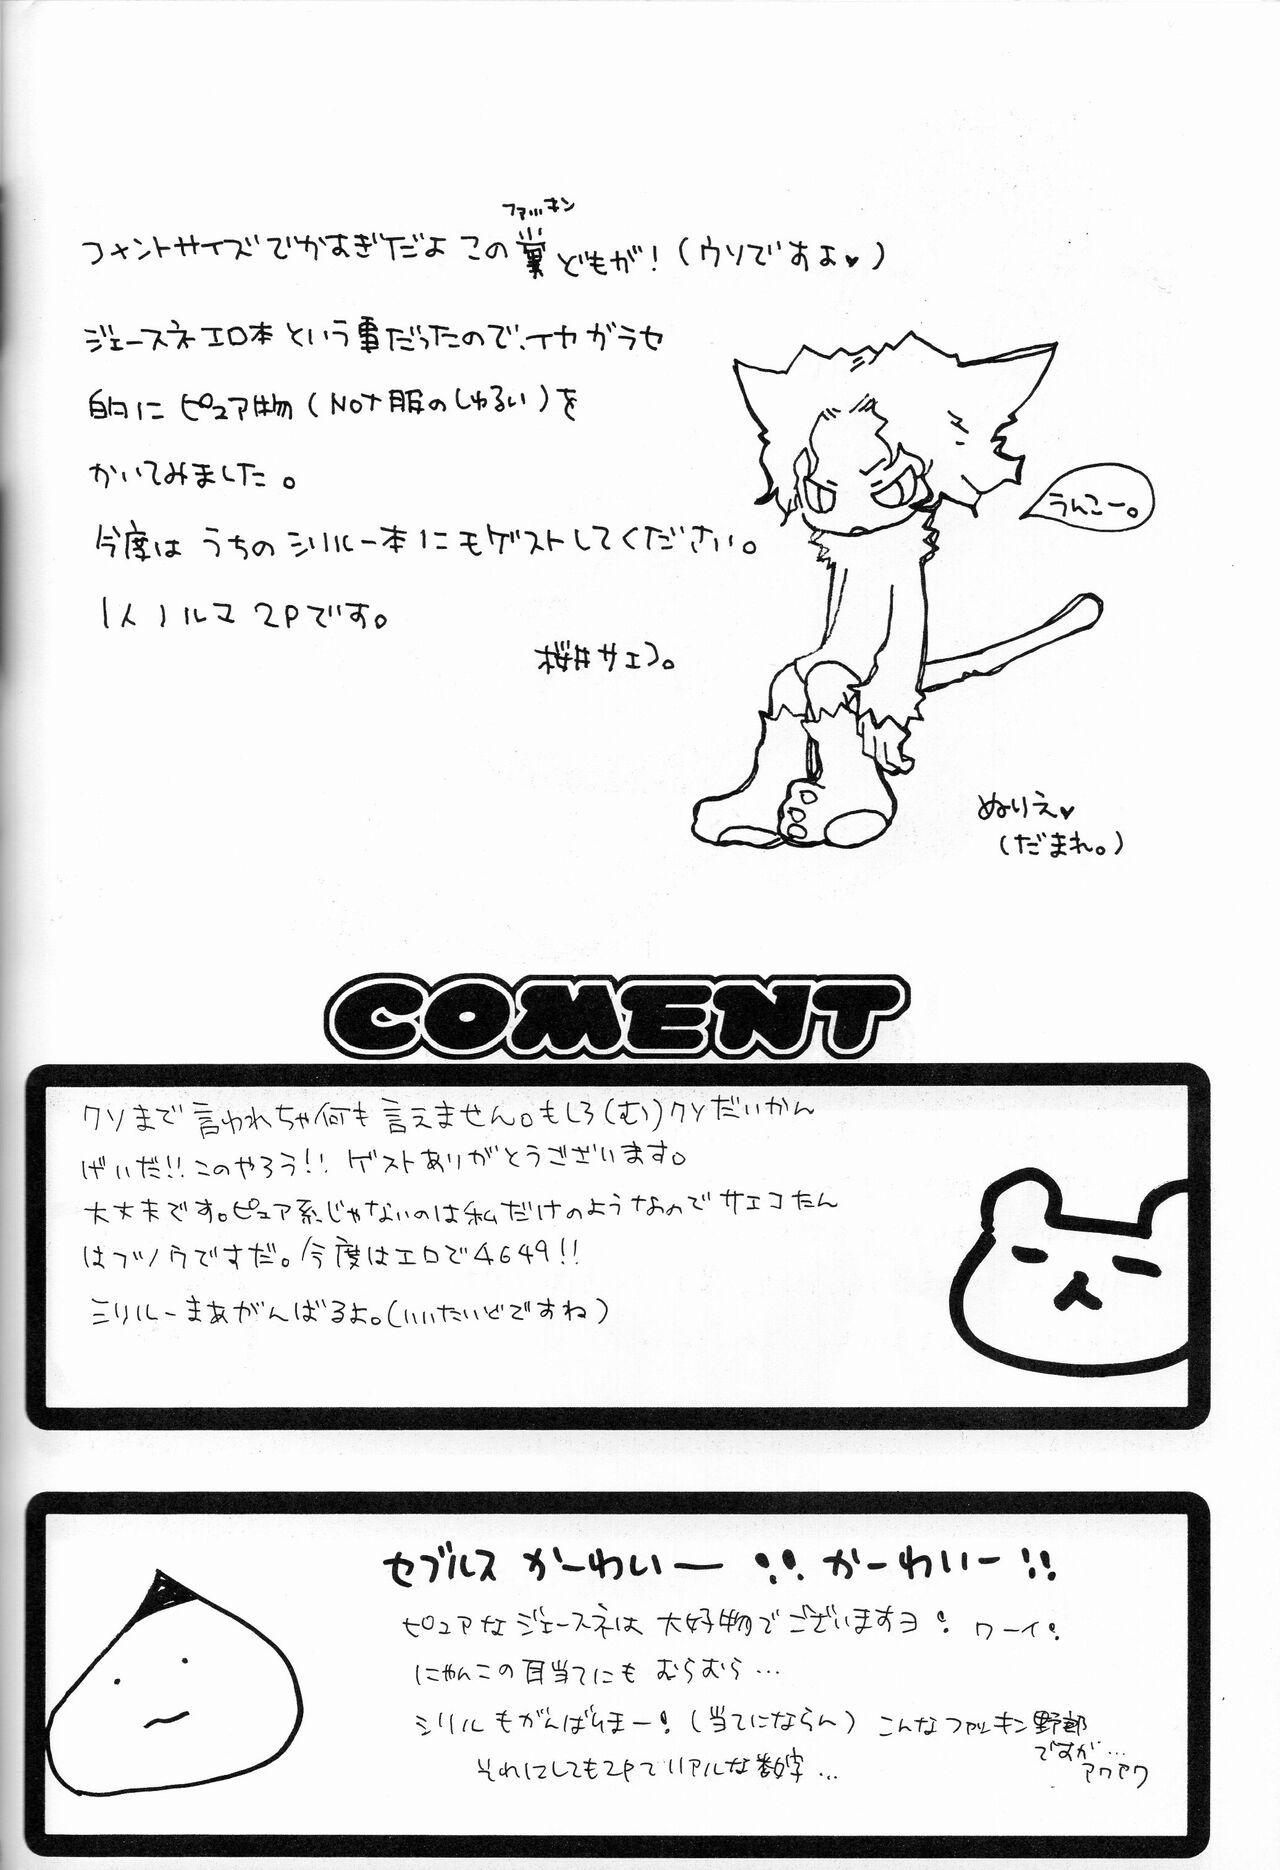 ファッキン
フォントサイズでかすぎだよ この糞どもが!(ウソですよ♥)
ジェースネエロ本という事だったので、イヤガラセ
的に ピュア物(Not服のしゅるい)を
かいてみました。
今度は うちの シリル一本にモゲストしてください。
1人ノルマ 2Pです。
桜井サエコ。
うんこー。
ぬりえ♥
(だまれ。)
COMENT
クソまで言われちゃ何も言えません。もしろ(む)クソだいかん
げいだ!!このやろう!! ゲストありがとうございます。
大丈夫です。ピュア系じゃないのは私だけのようなのでサエコたん
はブノウですだ。今度はエロで4649!!
シリルーまあがんばるよ。(いいたいどですね)
セブルス かーわいー !! かーわいー !!
ピュアな ジェースネは 大好物でございますヨ! ワーイ!
にゃんこの目当てにも むらむら…
シリルもがんばりまー!(当てにならん) こんなファッキン野郎
ですが…
アワアワ
それにしても2Pでリアルな数字…